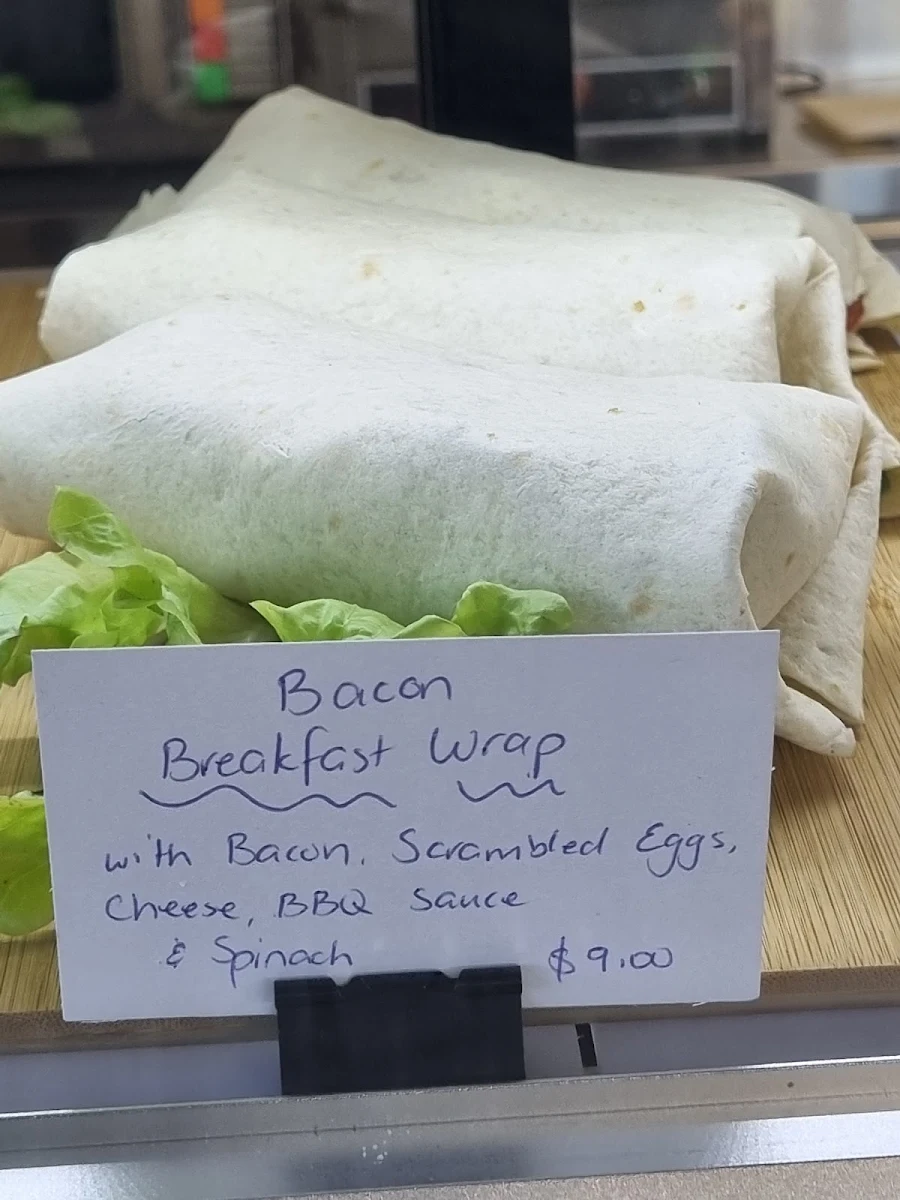 Bacon
Breakfast Wrap
with Bacon, Scrambled Eggs,
Cheese, BBQ Sauce
& Spinach $9.00